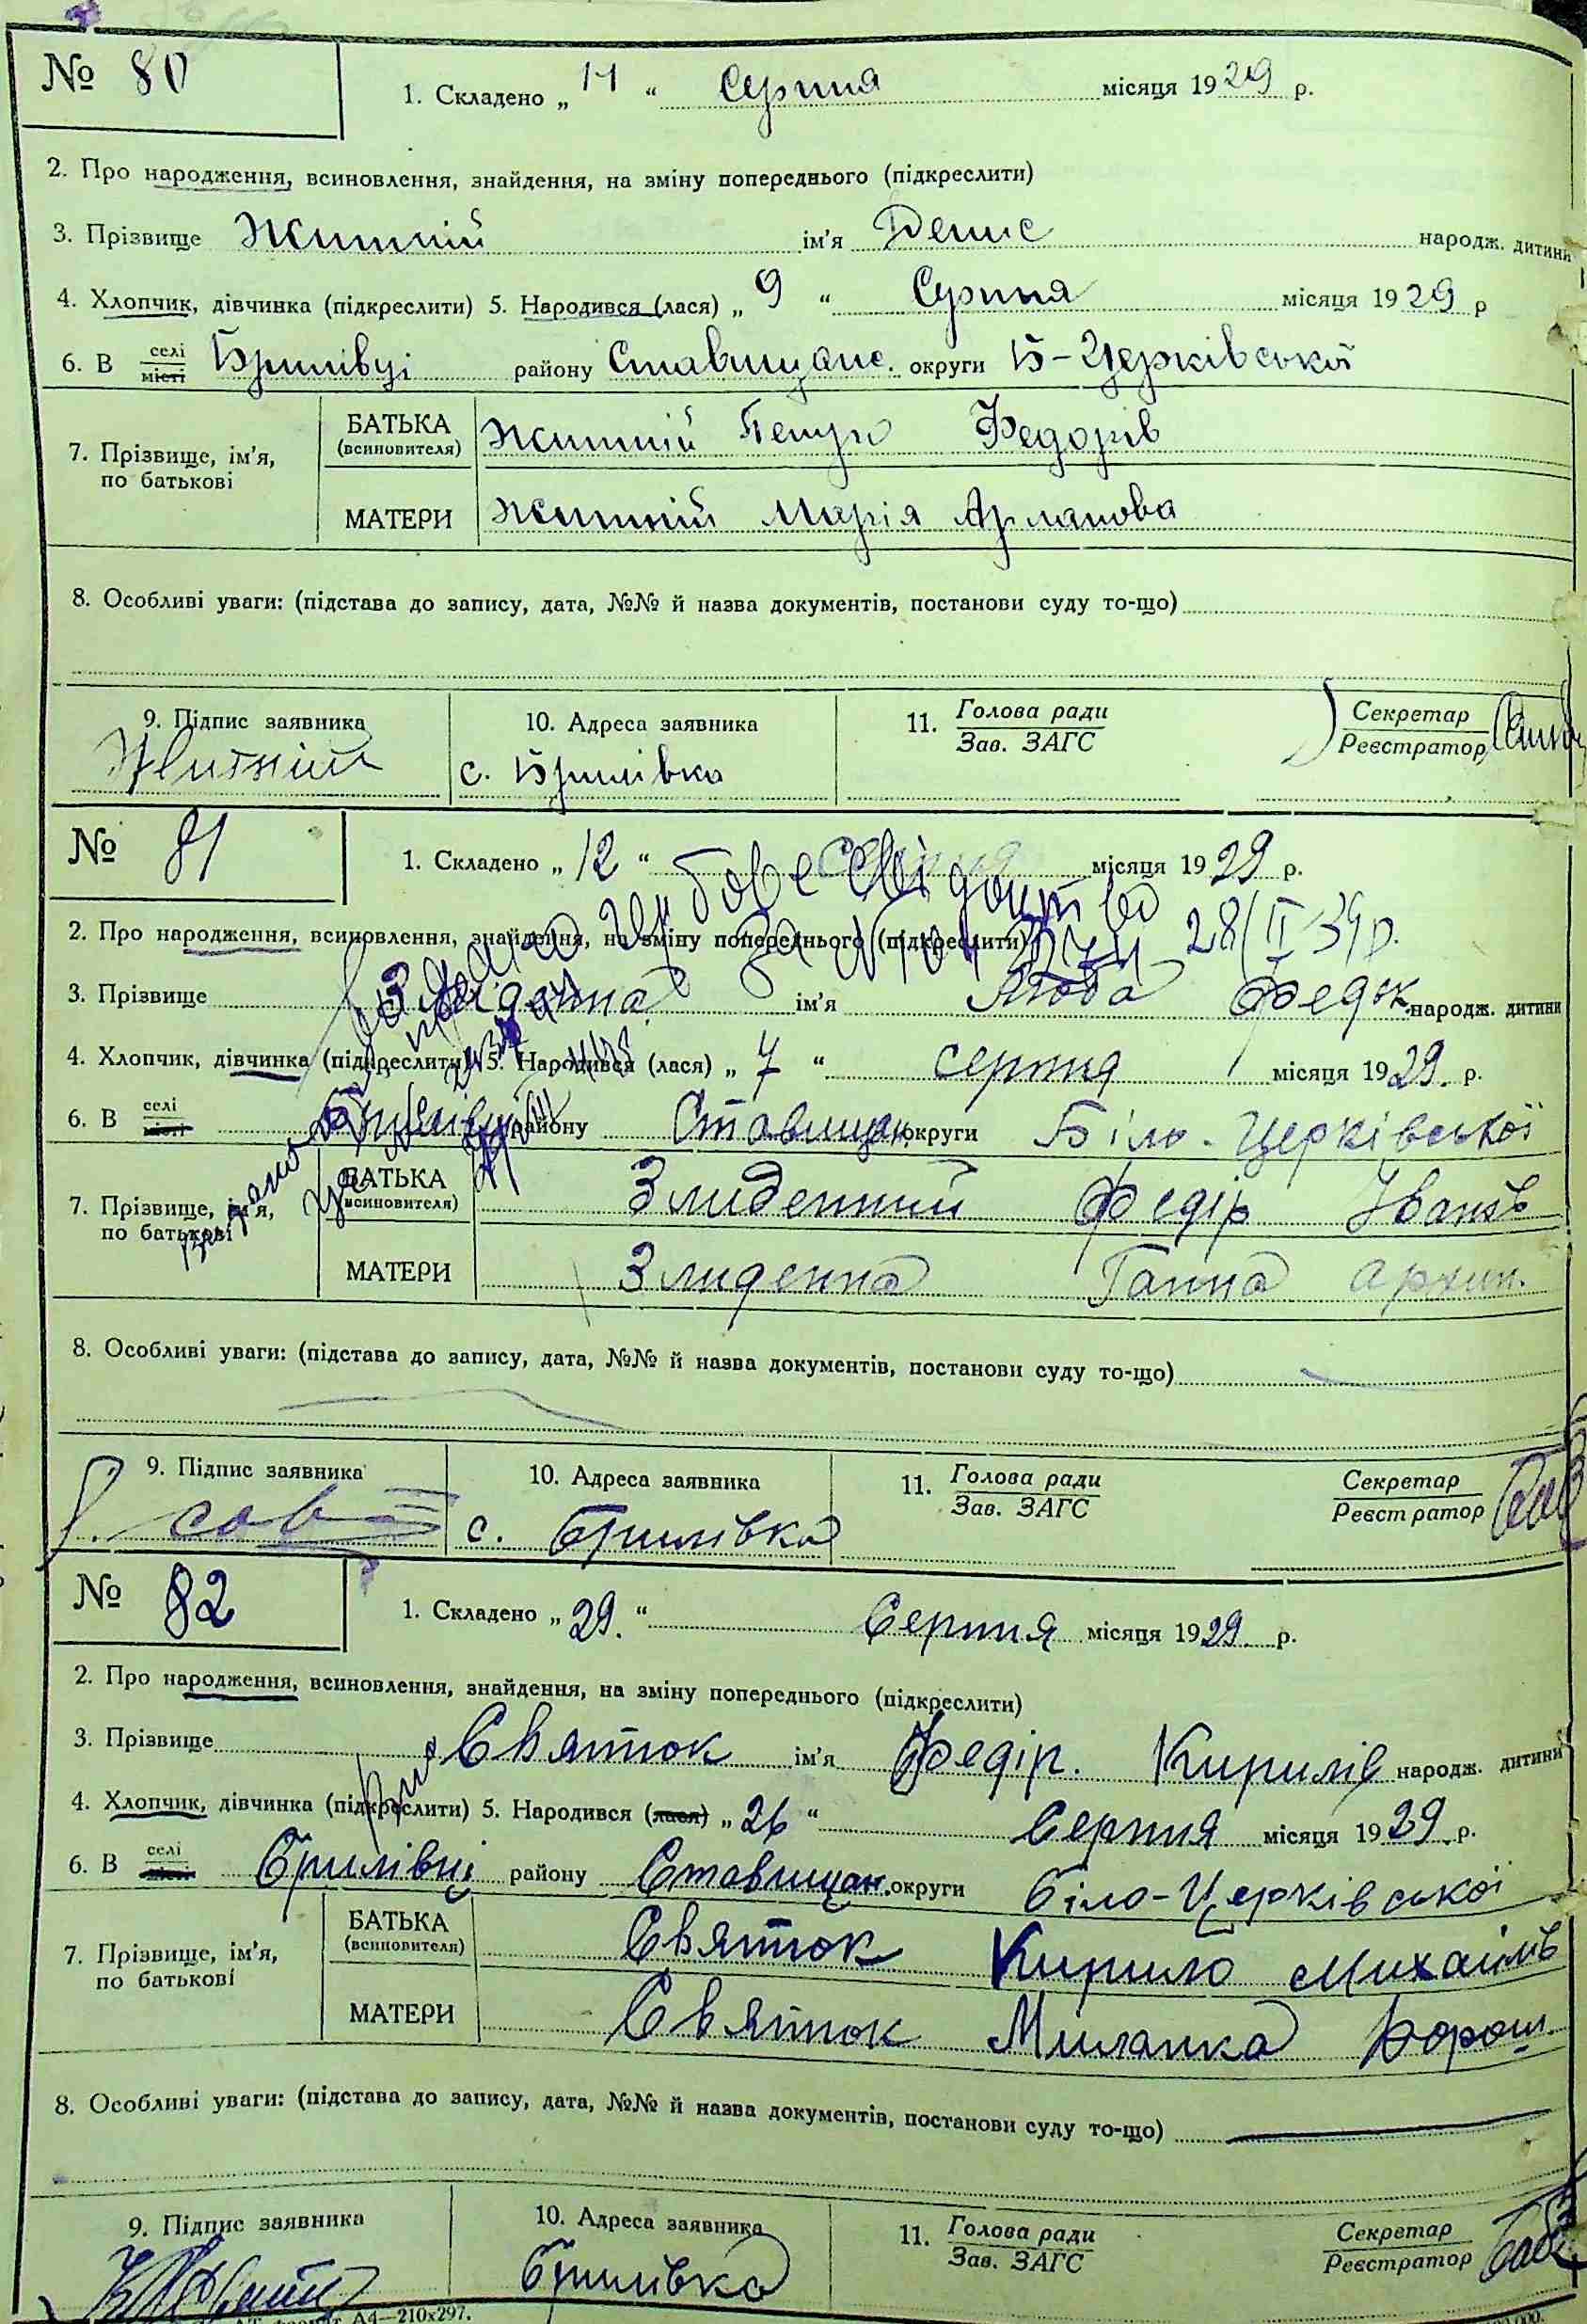 № 80
1. Складено „ 11 “ Серпня місяця 1929 р.
2. Про народження, всиновлення, знайдення, на зміну попереднього (підкреслити)
3. Прізвище Житній ім'я Денис народж. дитини
4. Хлопчик, дівчинка (підкреслити) 5. Народився (лася) „ 9 “ Серпня місяця 1929 р
6. В селі місті Брилівці району Ставищанс. округи Б-Церківської
7. Прізвище, ім'я, по батькові
БАТЬКА (всиновителя) Житній Петро Федорів
МАТЕРИ Житній Марія
8. Особливі уваги: (підстава до запису, дата, №№ й назва документів, постанови суду то-що)
9. Підпис заявника 10. Адреса заявника 11. Голова ради Зав. ЗАГС Секретар Реєстратор
Житній с. Брилівка
№ 81
1. Складено „ 12 “ місяця 1929 р.
2. Про народження, всиновлення, знайдення, на зміну попереднього (підкреслити)
28/II 39р.
3. Прізвище ім'я Люба Федор. народж. дитини
4. Хлопчик, дівчинка (підкреслити) 5. Народився (лася) „ 7 “ серпня місяця 1929. р.
6. В селі місті Брилівці району Ставищан. округи Біло-Церківської
7. Прізвище, ім'я, по батькові
БАТЬКА (всиновителя) Злиденний Федір Іванів
МАТЕРИ Злиденна Ганна Архип.
8. Особливі уваги: (підстава до запису, дата, №№ й назва документів, постанови суду то-що)
9. Підпис заявника 10. Адреса заявника 11. Голова ради Зав. ЗАГС Секретар Реєстратор
с. Брилівка
№ 82
1. Складено „ 29. “ Серпня місяця 1929. р.
2. Про народження, всиновлення, знайдення, на зміну попереднього (підкреслити)
3. Прізвище Святюк ім'я Федір. Кирилів народж. дитини
4. Хлопчик, дівчинка (підкреслити) 5. Народився (лася) „ 26 “ Серпня місяця 1929. р.
6. В селі місті Брилівці району Ставищан. округи Біло-Церківської
7. Прізвище, ім'я, по батькові
БАТЬКА (всиновителя) Святюк Кирило Михайлів
МАТЕРИ Святюк Миланка Дорош.
8. Особливі уваги: (підстава до запису, дата, №№ й назва документів, постанови суду то-що)
9. Підпис заявника 10. Адреса заявника 11. Голова ради Зав. ЗАГС Секретар Реєстратор
Брилівка
А4—210х297.